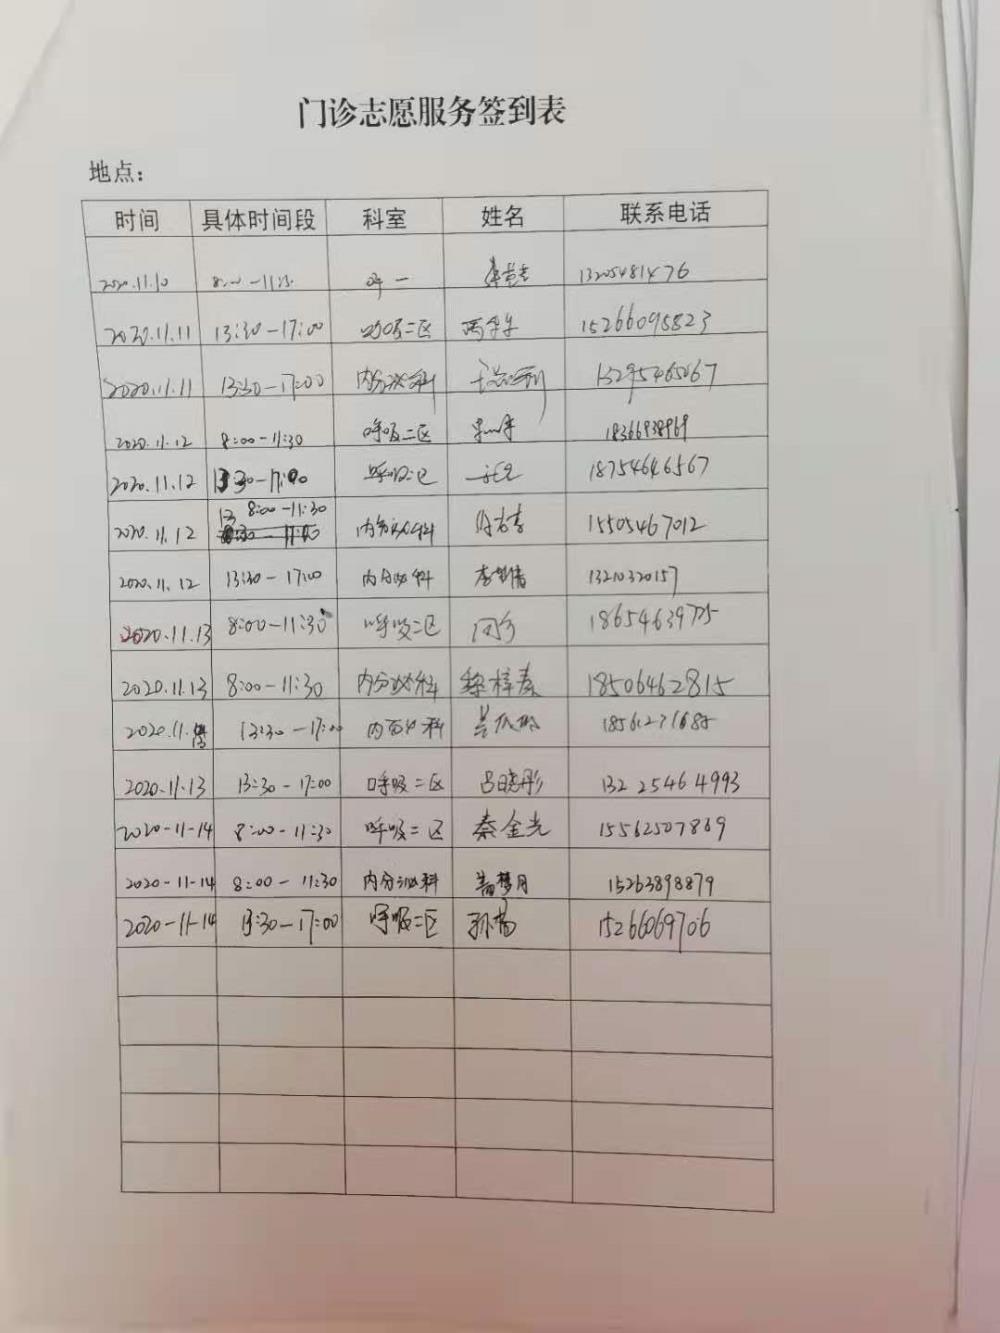 门诊志愿服务签到表
地点：
时间 具体时间段 科室 姓名 联系电话
2020.11.10 呼一 13205481476
2020.11.11 13:30-17:00 呼吸二区 15266095823
2020.11.11 13:30-17:00 内分泌科
2020.11.12 8:00-11:30 呼吸二区 18366938969
2020.11.12 13:30-17:00 呼吸二区 18754646567
2020.11.12 8:00-11:30 内分泌科 15505467012
2020.11.12 13:30-17:00 内分泌科 13210320157
2020.11.13 8:00-11:30 呼吸二区
2020.11.13 8:00-11:30 内分泌科 18506462815
2020.11.13 13:30-17:00 内分泌科
2020.11.13 13:30-17:00 呼吸二区 吕晓彤 132 2546 4993
2020-11-14 8:00-11:30 呼吸二区 秦金光 15562507869
2020-11-14 8:00-11:30 内分泌科 15263898879
2020-11-14 13:30-17:00 呼吸二区 孙杨 15266069706